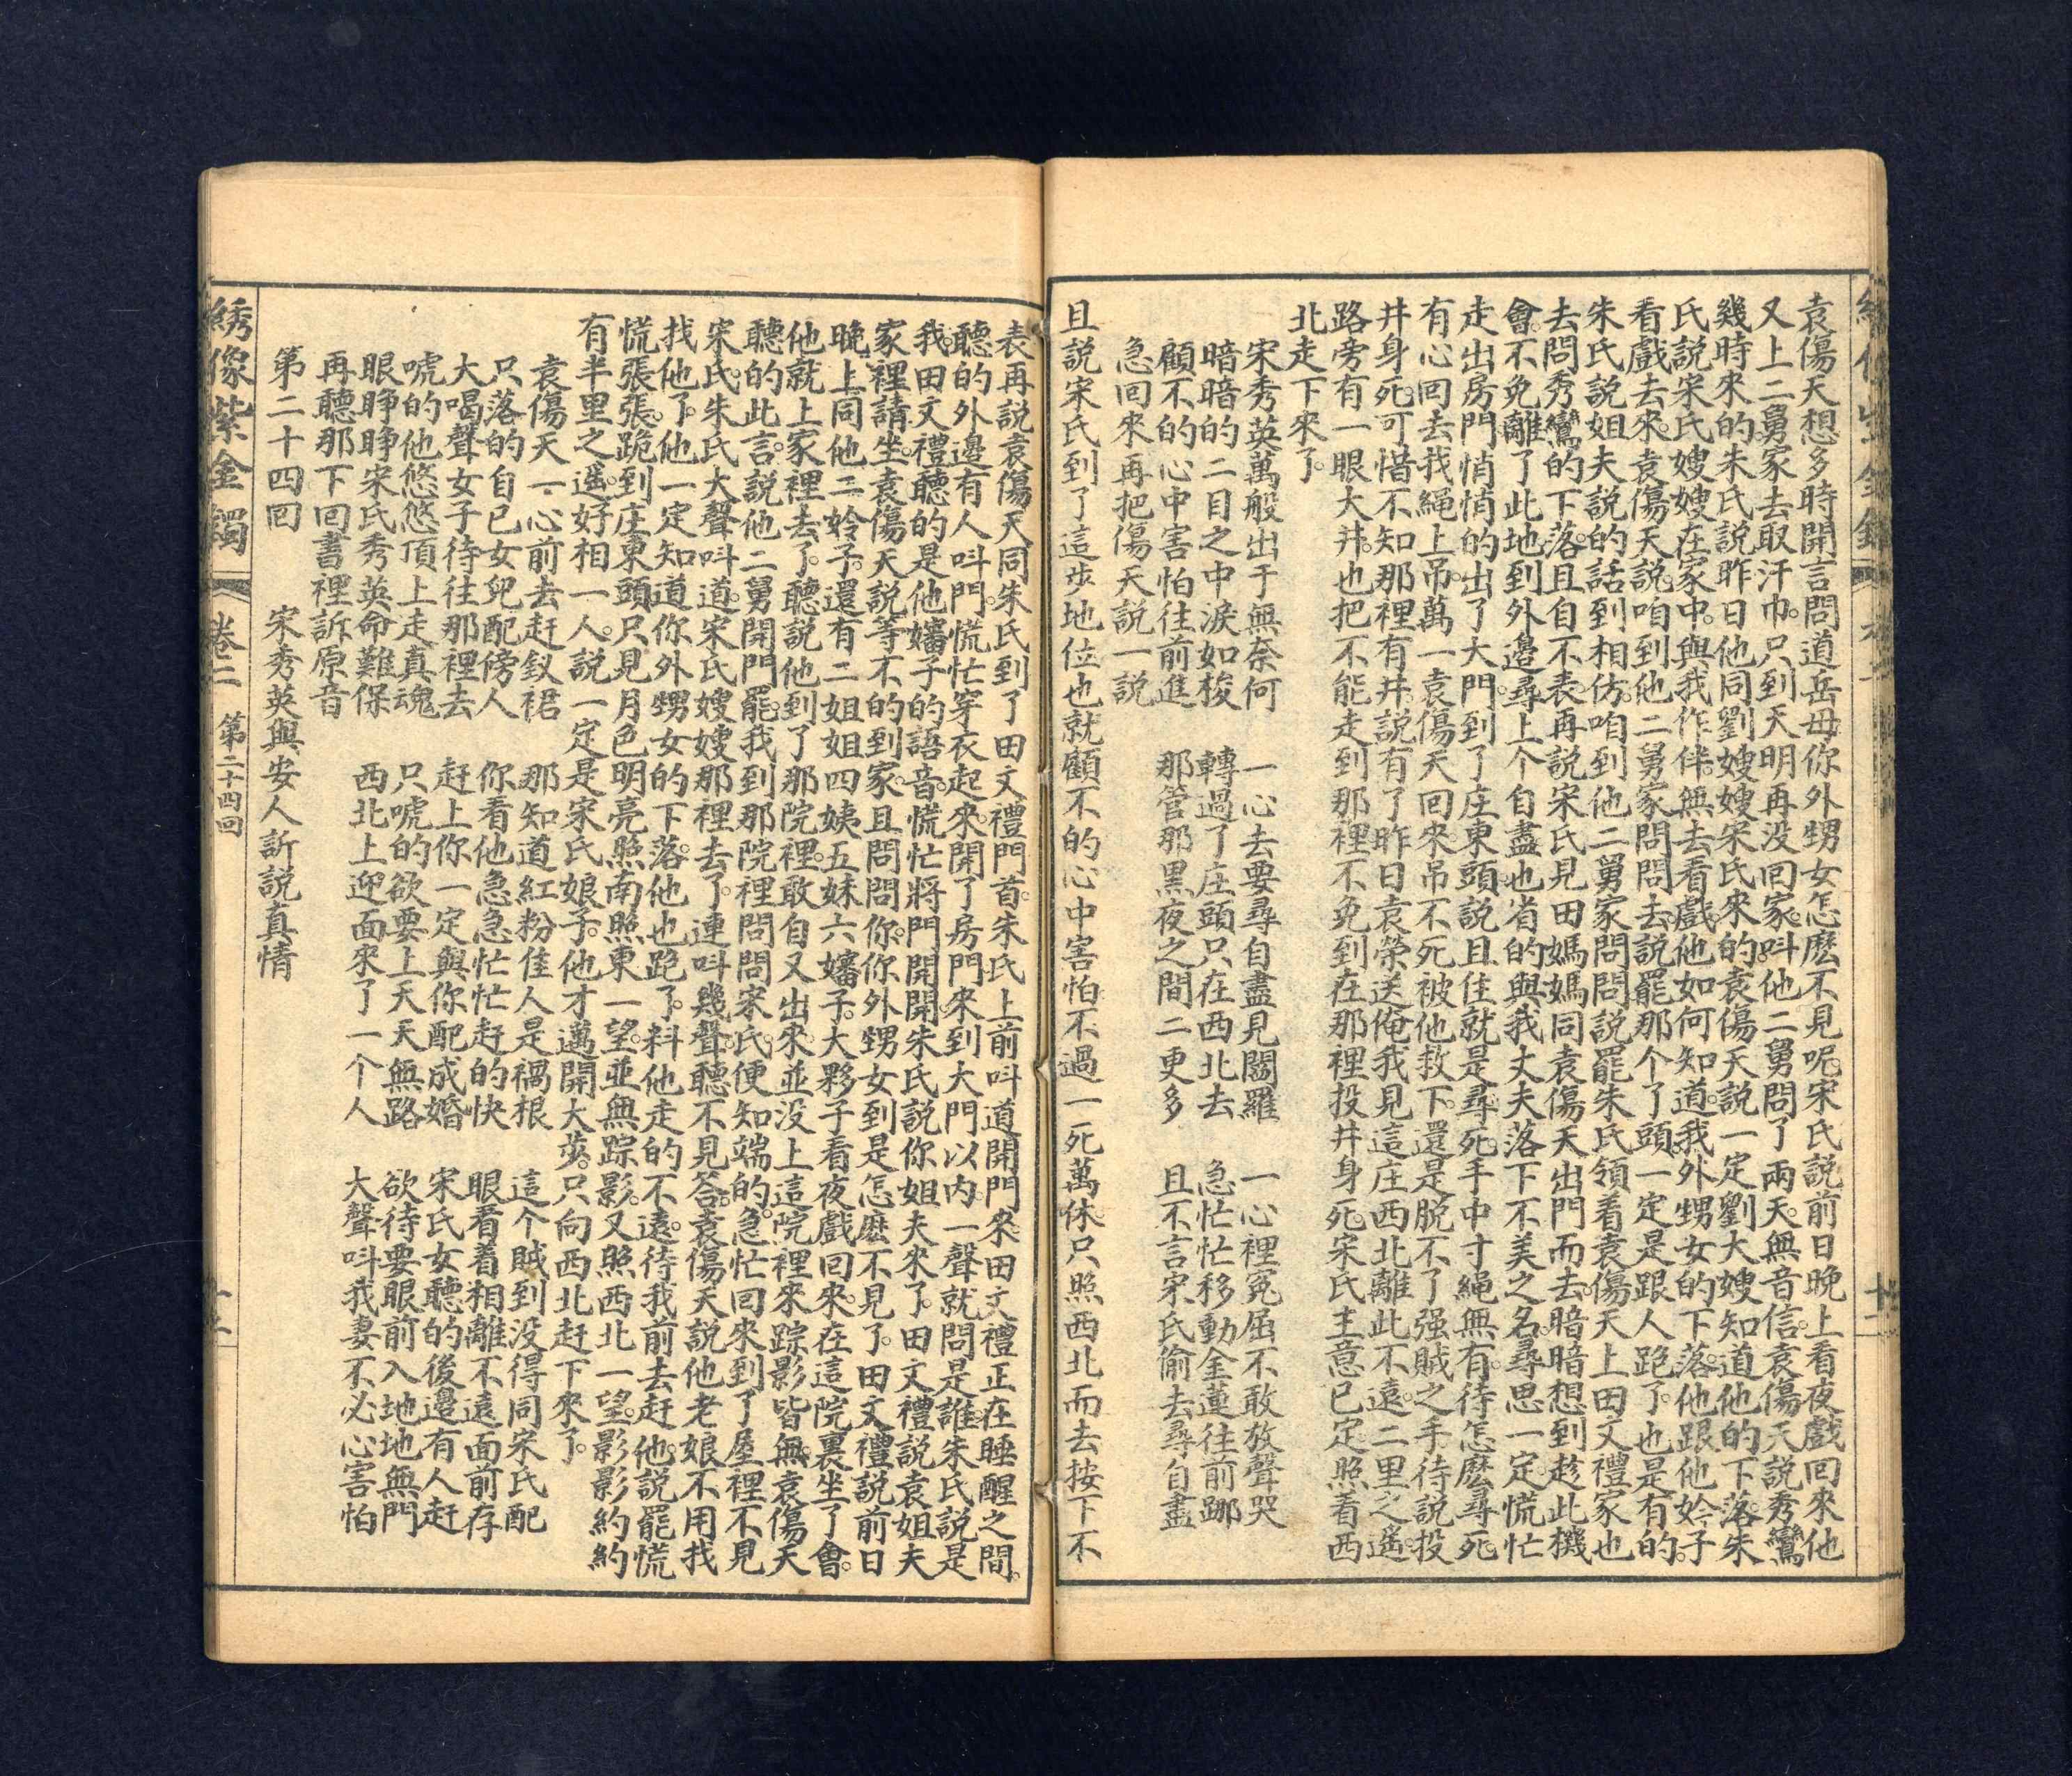 袁傷天想多時開言問道岳母你外甥女怎麽不見呢宋氏説前日晚上看夜戲回來他
又上二舅家去取汗巾只到天明再没回家叫他二舅問了兩天無音信袁傷天説秀鸞
幾時來的朱氏説昨日他同劉嫂嫂宋氏來的袁傷天説一定劉大嫂知道他的下落朱
氏説宋氏嫂嫂在家中與我作伴無去看戲他如何知道我外甥女的下落他跟他妗子
看戲去來袁傷天説咱到他二舅家問問去説罷那个了頭一定是跟人跑了也是有的
朱氏説姐夫説的話到相仿咱到他二舅家問問説罷朱氏領着袁傷天上田文禮家也
去問秀鸞的下落且自不表再説宋氏見田媽媽同袁傷天出門而去暗暗想到趁此機
會不免離了此地到外邊尋上个自盡也省的與我丈夫落下不美之名尋思一定慌忙
走出房門悄悄的出了大門到了庄東頭説且住就是尋死手中寸繩無有待怎麽尋死
有心回去找繩上吊萬一袁傷天回來吊不死被他救下還是脱不了强賊之手待説投
井身死可惜不知那裡有井説有了昨日袁榮送俺我見這庄西北離此不遠二里之遥
路旁有一眼大井也把不能走到那裡不免到在那裡投井身死宋氏主意已定照着西
北走下來了
宋秀英萬般出于無奈何　一心去要尋自盡見閻羅　一心裡冤屈不敢放聲哭
暗暗的二目之中淚如梭　轉過了庄頭只在西北去　急忙忙移動金蓮往前挪
顧不的心中害怕往前進　那管那黑夜之間二更多　且不言宋氏偷去尋自盡
急回來再把傷天説一説
且説宋氏到了這步地位也就顧不的心中害怕不過一死萬休只照西北而去按下不
表再説袁傷天同朱氏到了田文禮門首朱氏上前叫道開門來田文禮正在睡醒之間
聽的外邊有人叫門慌忙穿衣起來開了房門來到大門以内一聲就問是誰朱氏説是
我田文禮聽的是他嬸子的語音慌忙將門開開朱氏説你姐夫來了田文禮説袁姐夫
家裡請坐袁傷天説等不的到家且問問你你外甥女到是怎麽不見了田文禮説前日
晚上同他二妗子還有二姐姐四姨五妹六嬸子大夥子看夜戲回來在這院裏坐了會
他就上家裡去了聽説他到了那院裡敢自又出來並没上這院裡來踪影皆無袁傷天
聽的此言説他二舅開門罷我到那院裡問問宋氏便知端的急忙回來到了屋裡不見
宋氏朱氏大聲叫道宋氏嫂嫂那裡去了連叫幾聲聽不見答袁傷天説他老娘不用找
找他了他一定知道你外甥女的下落他也跑了料他走的不遠待我前去赶他説罷慌
慌張張跑到庄東頭只見月色明亮照南照東一望並無踪影又照西北一望影影約約
有半里之遥好相一人説一定是宋氏娘子他才邁開大步只向西北赶下來了
袁傷天一心前去赶釵裙　那知道紅粉佳人是禍根　這个賊到没得同宋氏配
只落的自己女兒配傍人　你看他急急忙忙赶的快　眼看着相離不遠面前存
大喝聲女子待往那裡去　赶上你一定與你配成婚　宋氏女聽的後邊有人赶
唬的他悠悠頂上走真魂　只唬的欲要上天天無路　欲待要眼前入地地無門
眼睁睁宋氏秀英命難保　西北上迎面來了一个人　大聲叫我妻不必心害怕
再聽那下回書裡訴原音
第二十四回　宋秀英與安人訴説真情
綉像紫金鐲　卷二　第二十四回